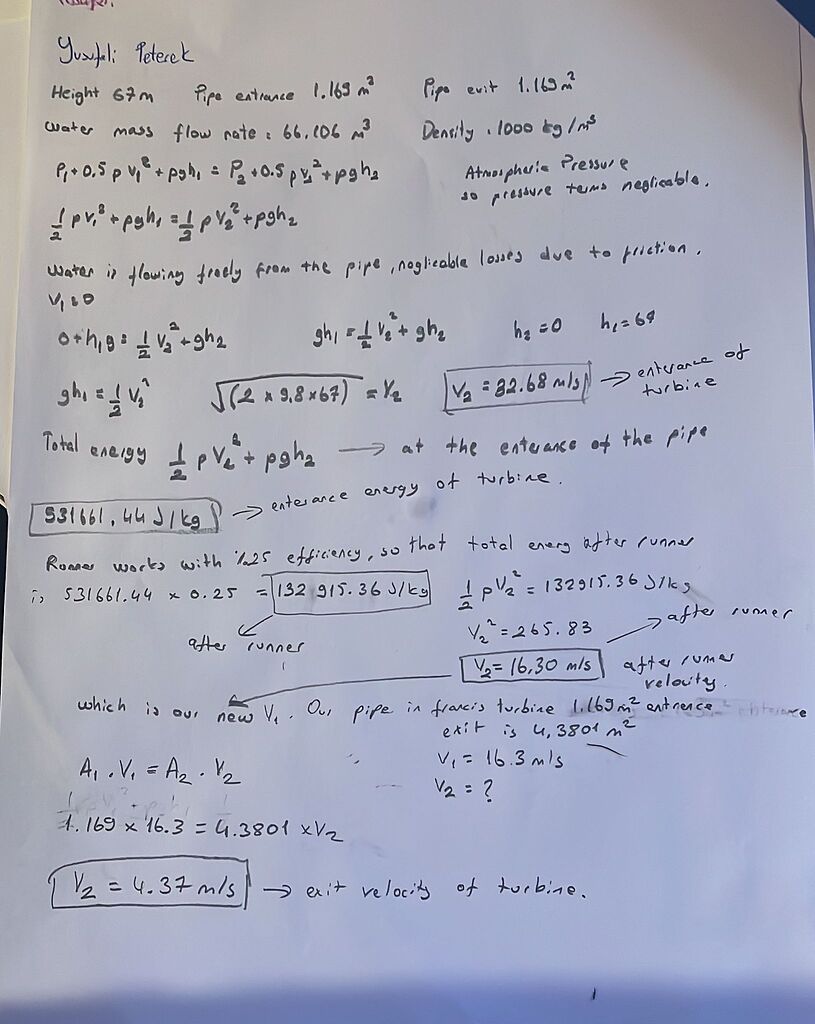 Yusufali Peterek
Height 67m Pipe entrance 1.169 m² Pipe exit 1.169 m²
Water mass flow rate : 66,106 m³ Density : 1000 kg/m³
P₁+0.5 ρ V₁²+ρgh₁ = P₂+0.5 ρV₂²+ρgh₂ Atmospheric Pressure
so pressure terms neglicable.
1/2 ρV₁²+ρgh₁ = 1/2 ρV₂²+ρgh₂
Water is flowing freely from the pipe, neglicable losses due to friction.
V₁=0
0+h₁g = 1/2 V₂²+gh₂ gh₁ = 1/2 V₂²+gh₂ h₂=0 h₁=67
gh₁ = 1/2 V₂² √(2×9,8×67) = V₂ V₂ = 32.68 m/s → enterance of
turbine
Total energy 1/2 ρV₂²+ρgh₂ → at the enterance of the pipe
531661,44 J/kg → enterance energy of turbine.
Runner works with %25 efficiency, so that total energ after runner
is 531661.44 × 0.25 = 132 915.36 J/kg 1/2 ρV₂² = 132915.36 J/kg
after runner
V₂² = 265.83 → after runner
V₂ = 16,30 m/s after runner
velocity.
which is our new V₁. Our pipe in francis turbine 1.169 m² entrence
exit is 4,3801 m²
V₁ = 16.3 m/s
A₁.V₁ = A₂.V₂
V₂ = ?
1.169 × 16.3 = 4.3801 × V₂
V₂ = 4.37 m/s → exit velocity of turbine.